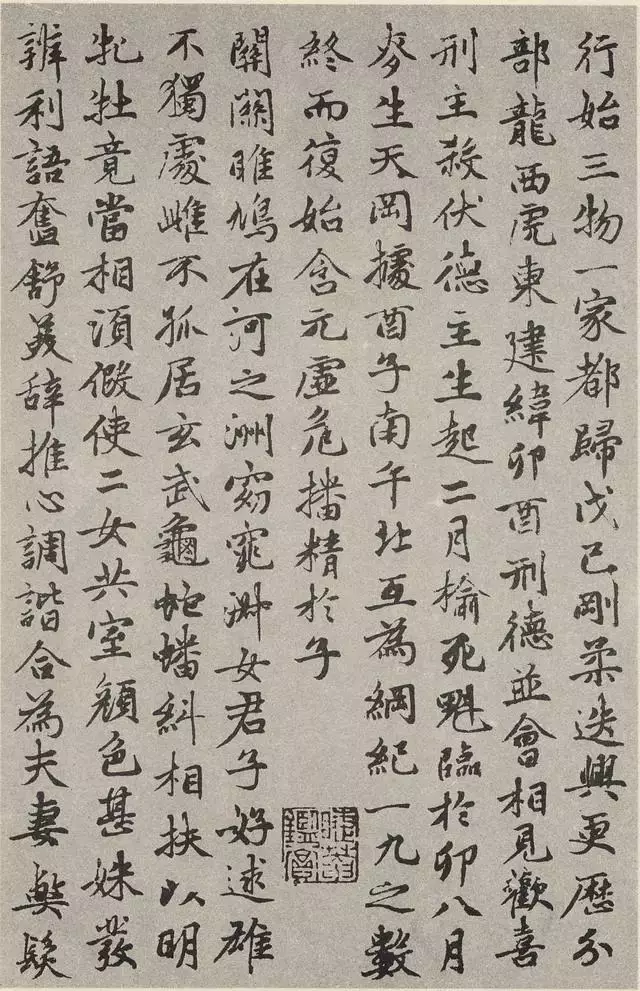 行始三物一家都歸戊己剛柔迭興更歷分
部龍西虎東建緯卯酉刑德並會相見歡喜
刑主殺伏德主生起二月榆死魁臨於卯八月
麥生天岡據酉子南午北互為綱紀一九之數
終而復始含元虛危播精於子
關關雎鳩在河之洲窈窕淑女君子好逑雄
不獨處雌不孤居玄武龜蛇蟠糾相扶以明
牝牡竟當相須假使二女共室顏色甚姝發
辨利語奮舒美辭推心調諧合為夫妻弊髮